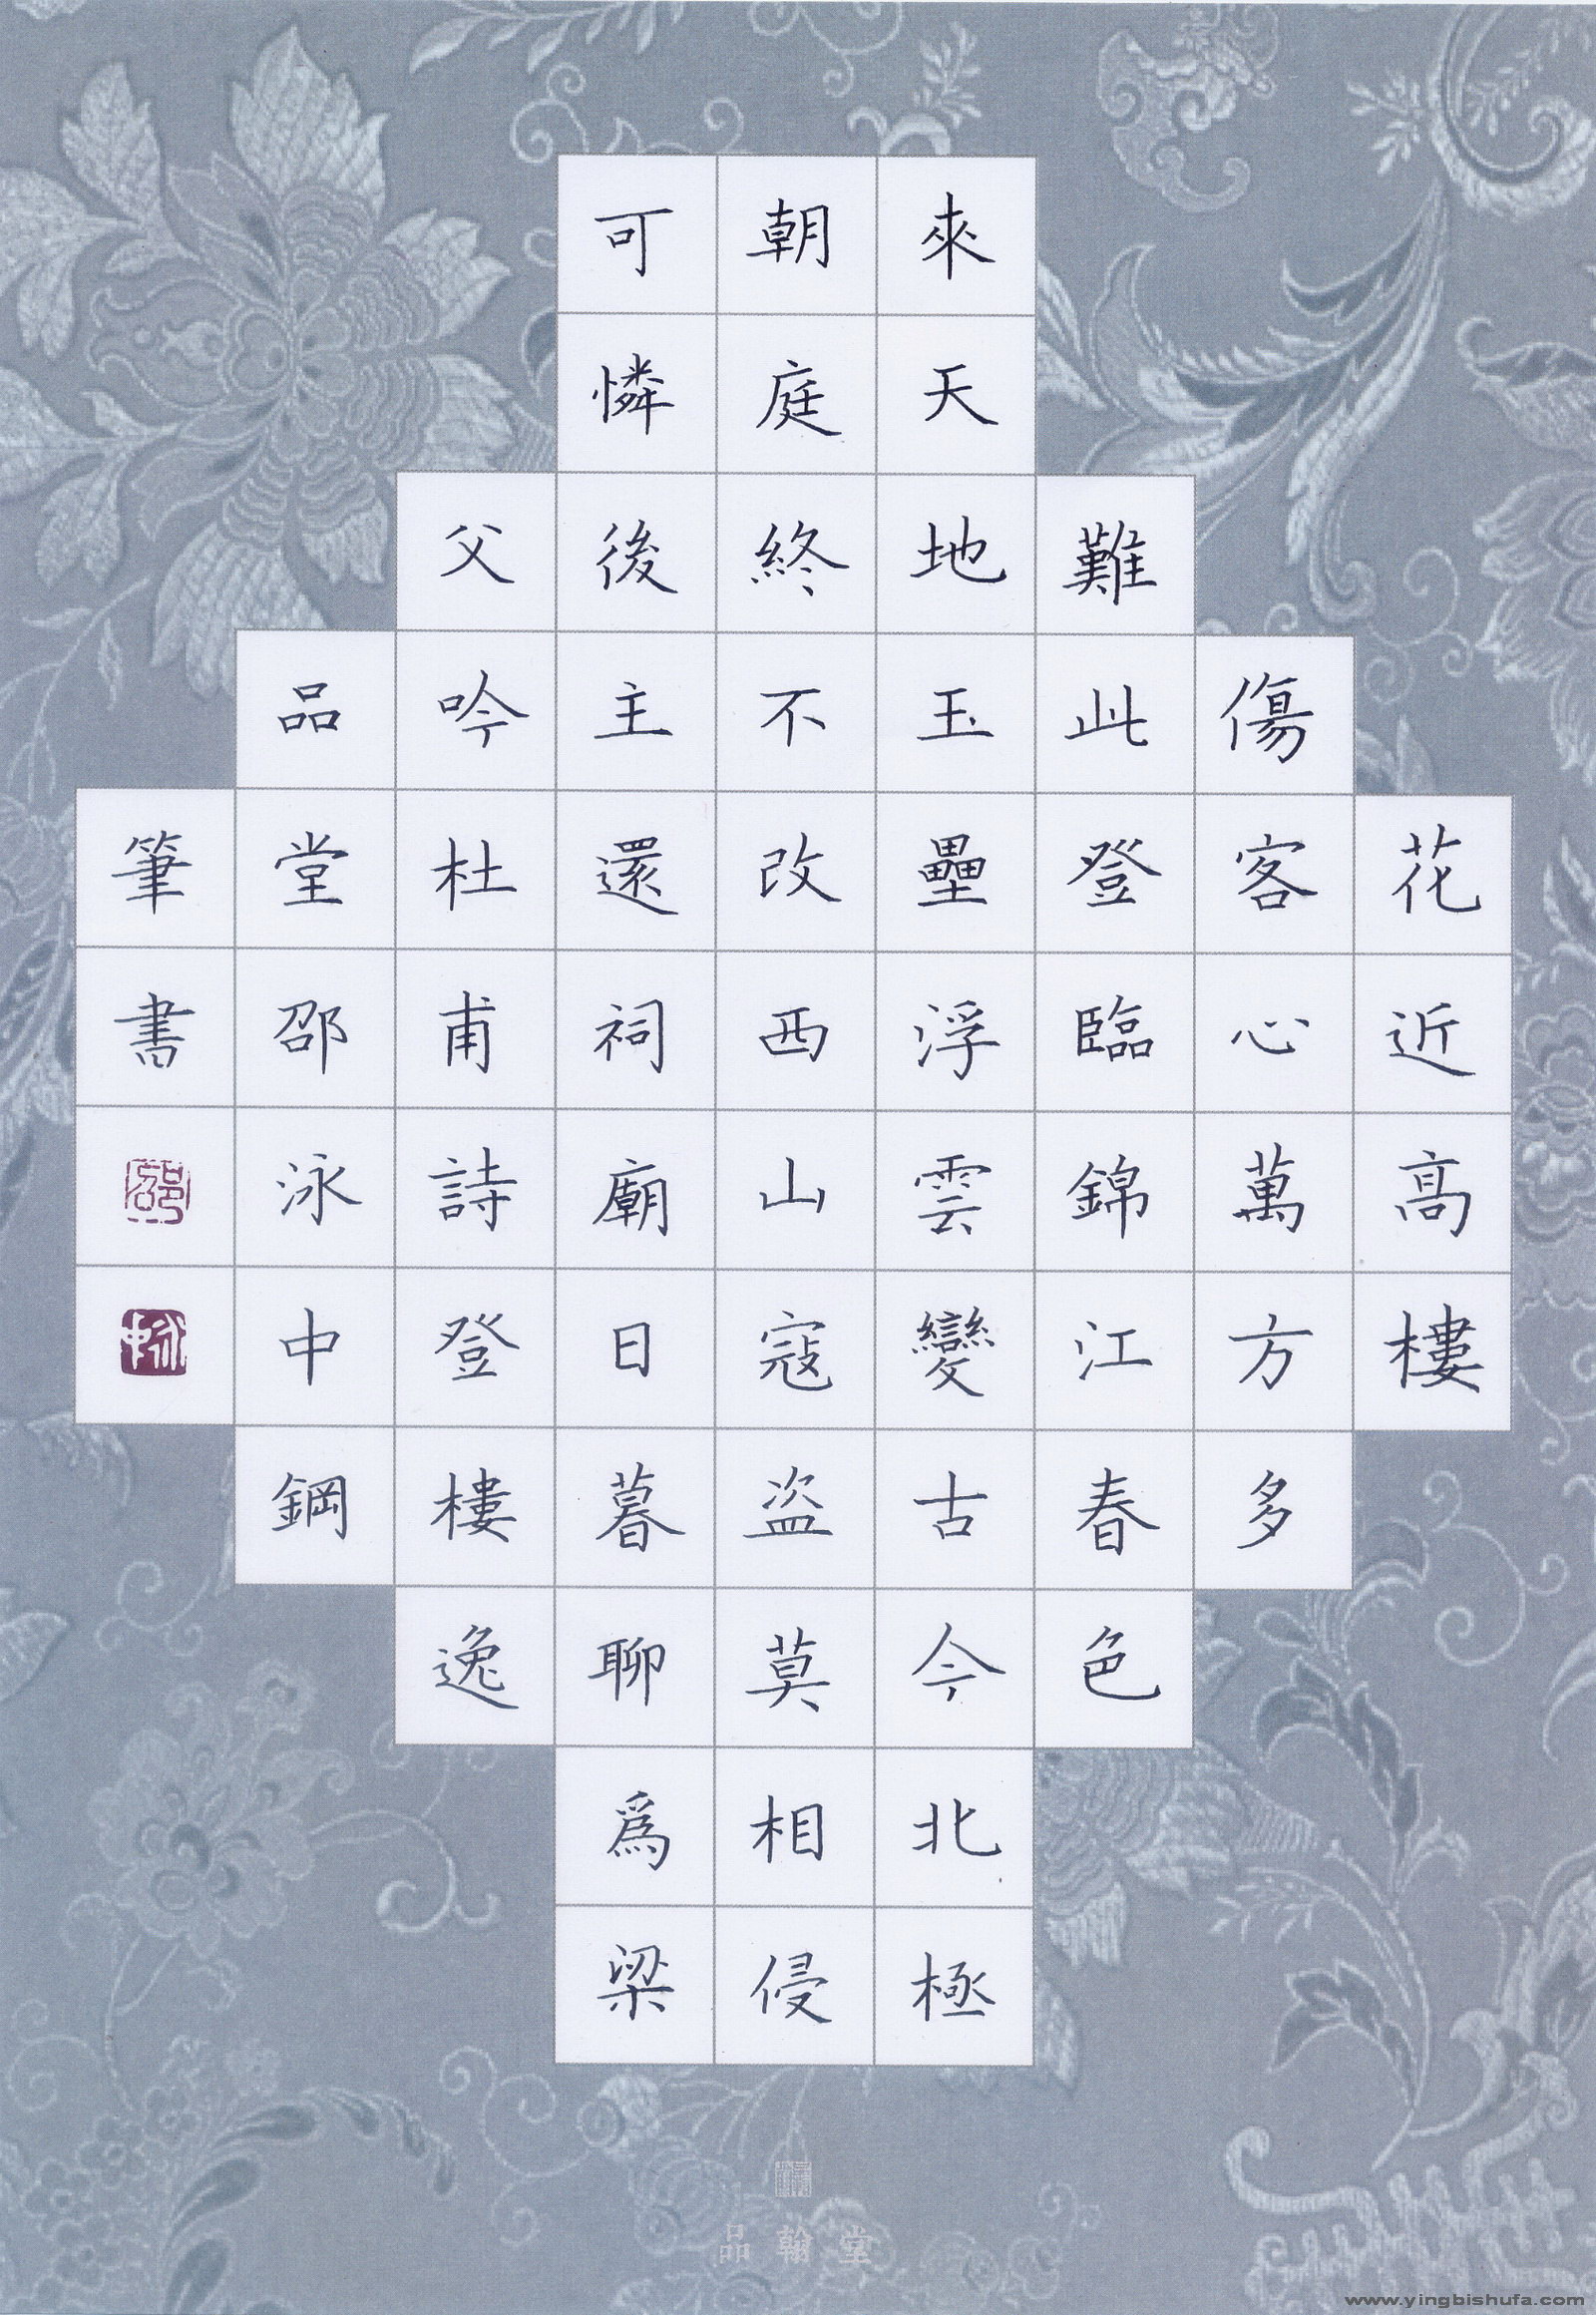 花近高樓
傷客心萬方多
難此登臨錦江春色
來天地玉壘浮雲變古今北極
朝庭終不改西山寇盜莫相侵
可憐後主還祠廟日暮聊爲梁
父吟杜甫詩登樓逸
品堂邵泳中鋼
筆書
邵
泳中
品翰堂
www.yingbishufa.com